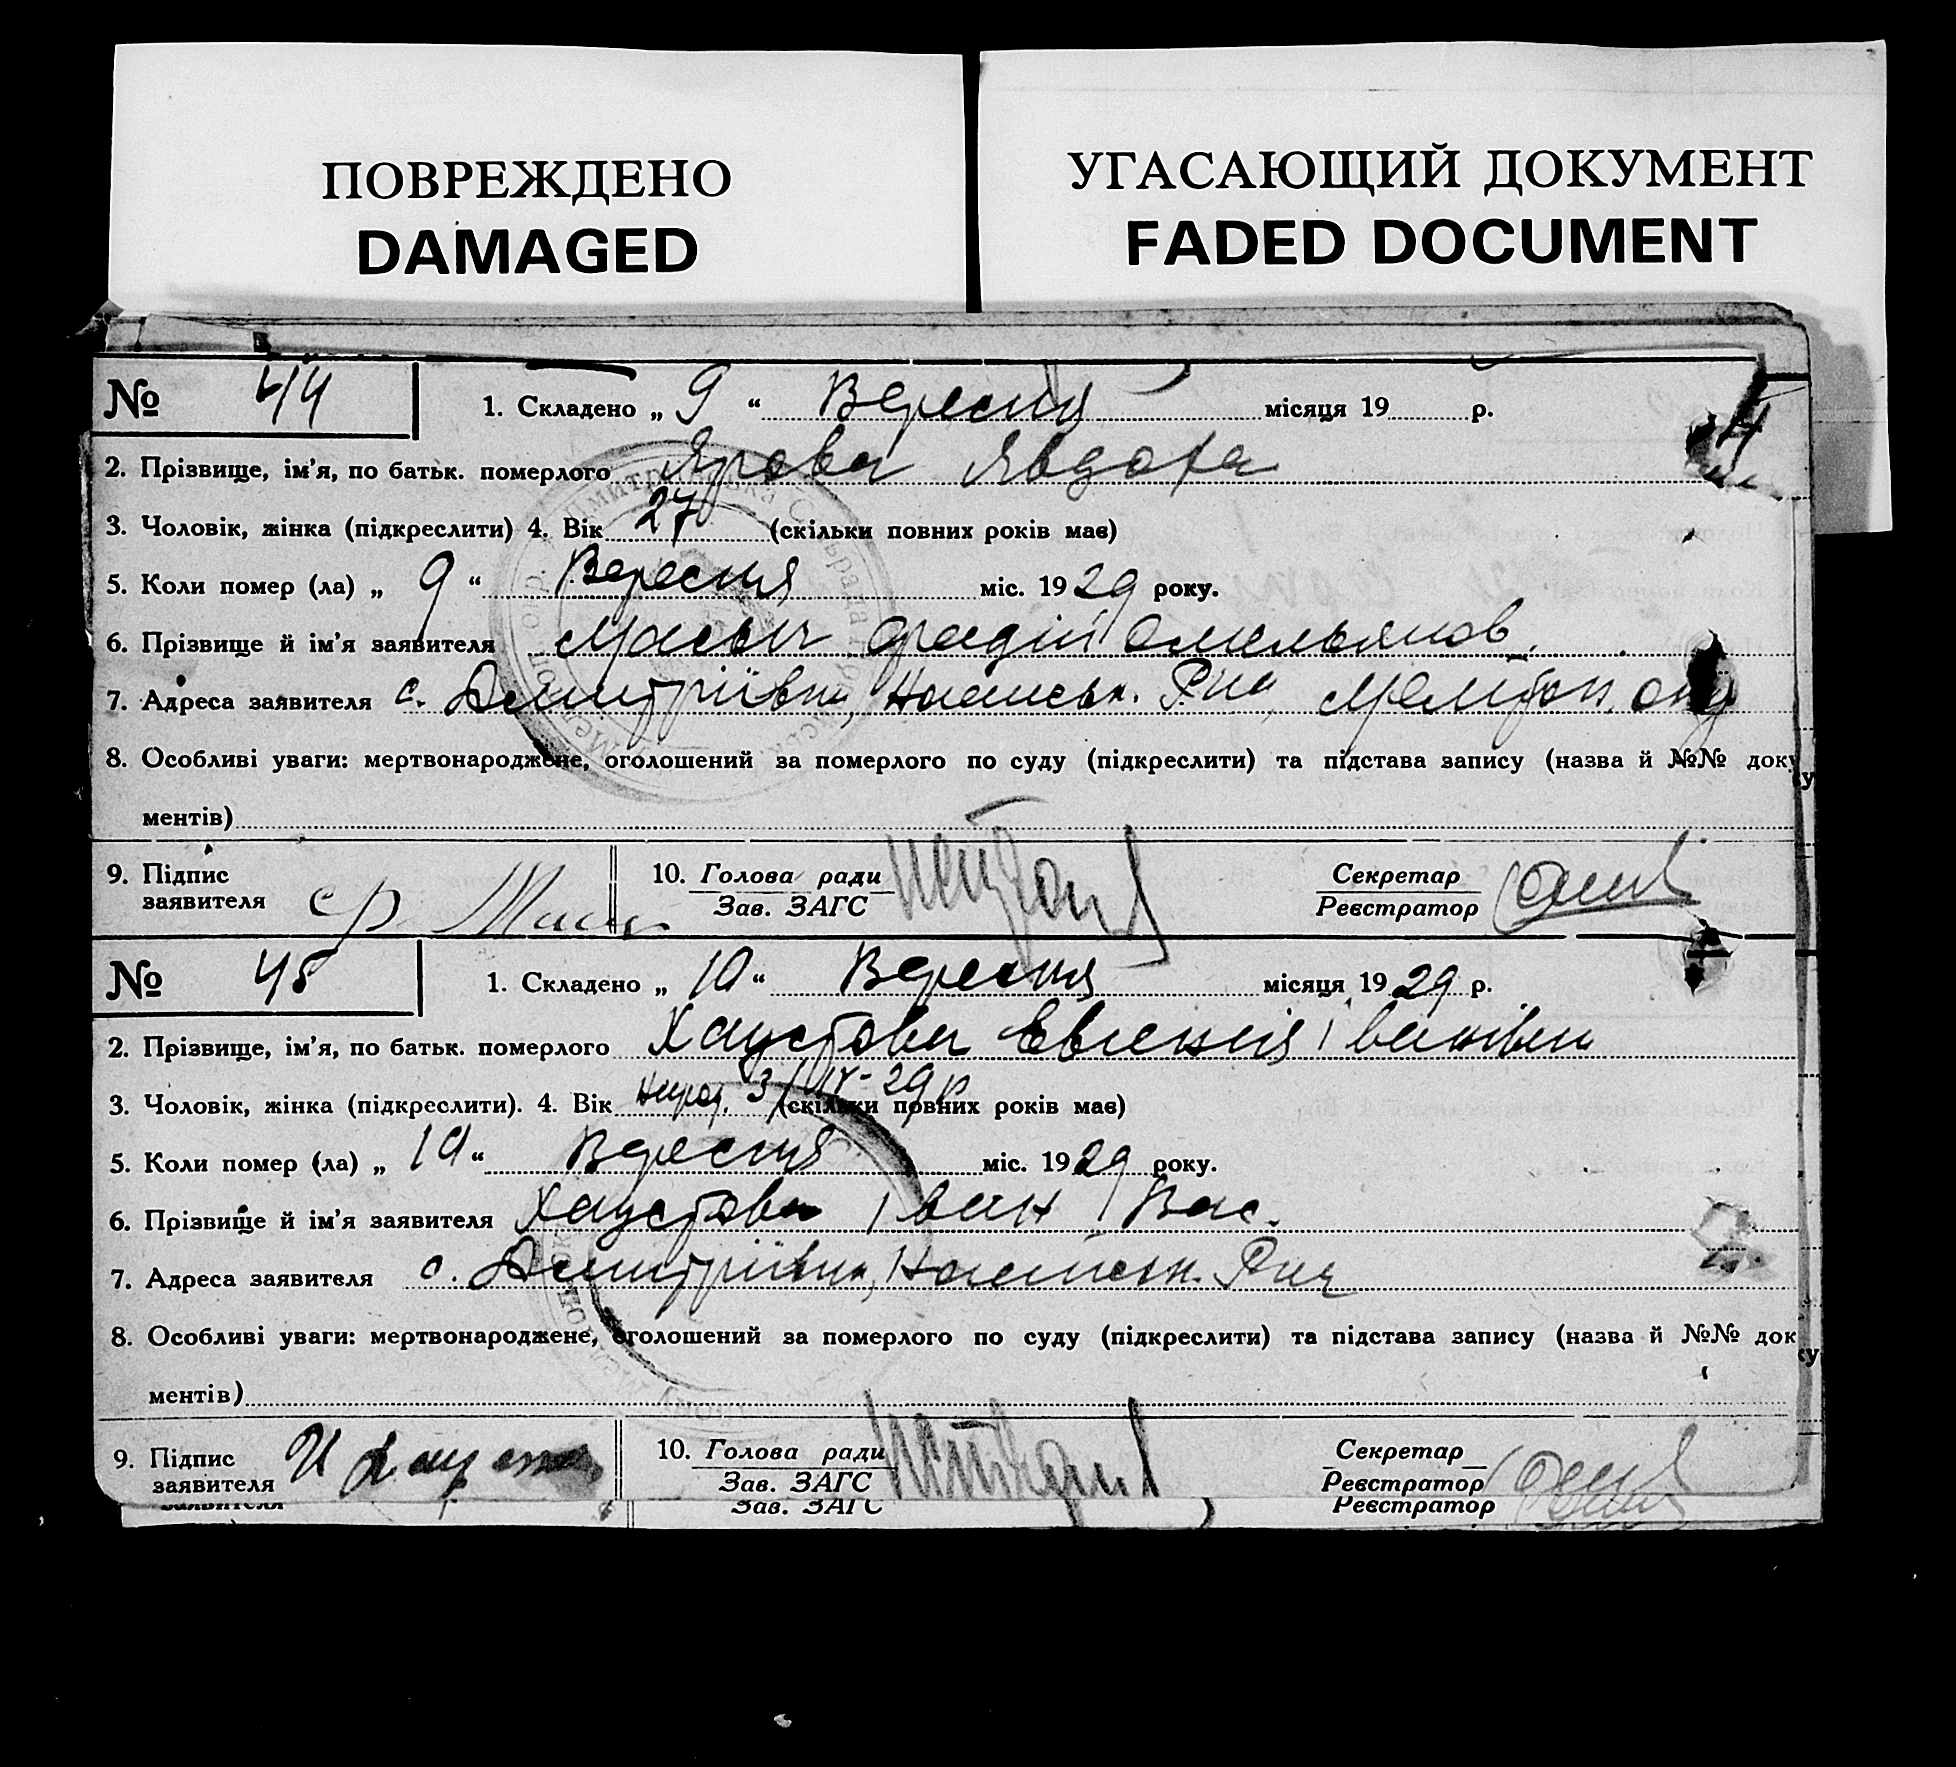 ПОВРЕЖДЕНО
DAMAGED
УГАСАЮЩИЙ ДОКУМЕНТ
FADED DOCUMENT
№ 44
1. Складено „ 9 “ Вересня місяця 19 р.
2. Прізвище, ім’я, по батьк. померлого Ярова Явдоха
3. Чоловік, жінка (підкреслити) 4. Вік 27 (скільки повних років має)
5. Коли помер (ла) „ 9 “ Вересня міс. 1929 року.
6. Прізвище й ім’я заявителя Омельянов.
7. Адреса заявителя с. Дмитріївка, Р-на, Мелітоп. окр
8. Особливі уваги: мертвонароджене, оголошений за померлого по суду (підкреслити) та підстава запису (назва й №№ доку
ментів)
9. Підпис
заявителя
10. Голова ради
Зав. ЗАГС
Секретар
Реєстратор
№ 45
1. Складено „ 10 “ Вересня місяця 1929 р.
2. Прізвище, ім’я, по батьк. померлого Хаустова Евгенія Іванівна
3. Чоловік, жінка (підкреслити). 4. Вік 3/ - 29 р (скільки повних років має)
5. Коли помер (ла) „ 10 “ Вересня міс. 1929 року.
6. Прізвище й ім’я заявителя Хаустова Іван Вас.
7. Адреса заявителя с. Дмитріївка, Р-на
8. Особливі уваги: мертвонароджене, оголошений за померлого по суду (підкреслити) та підстава запису (назва й №№ доку
ментів)
9. Підпис
заявителя И
10. Голова ради
Зав. ЗАГС
Секретар
Реєстратор
заявителя
Зав. ЗАГС
Реєстратор